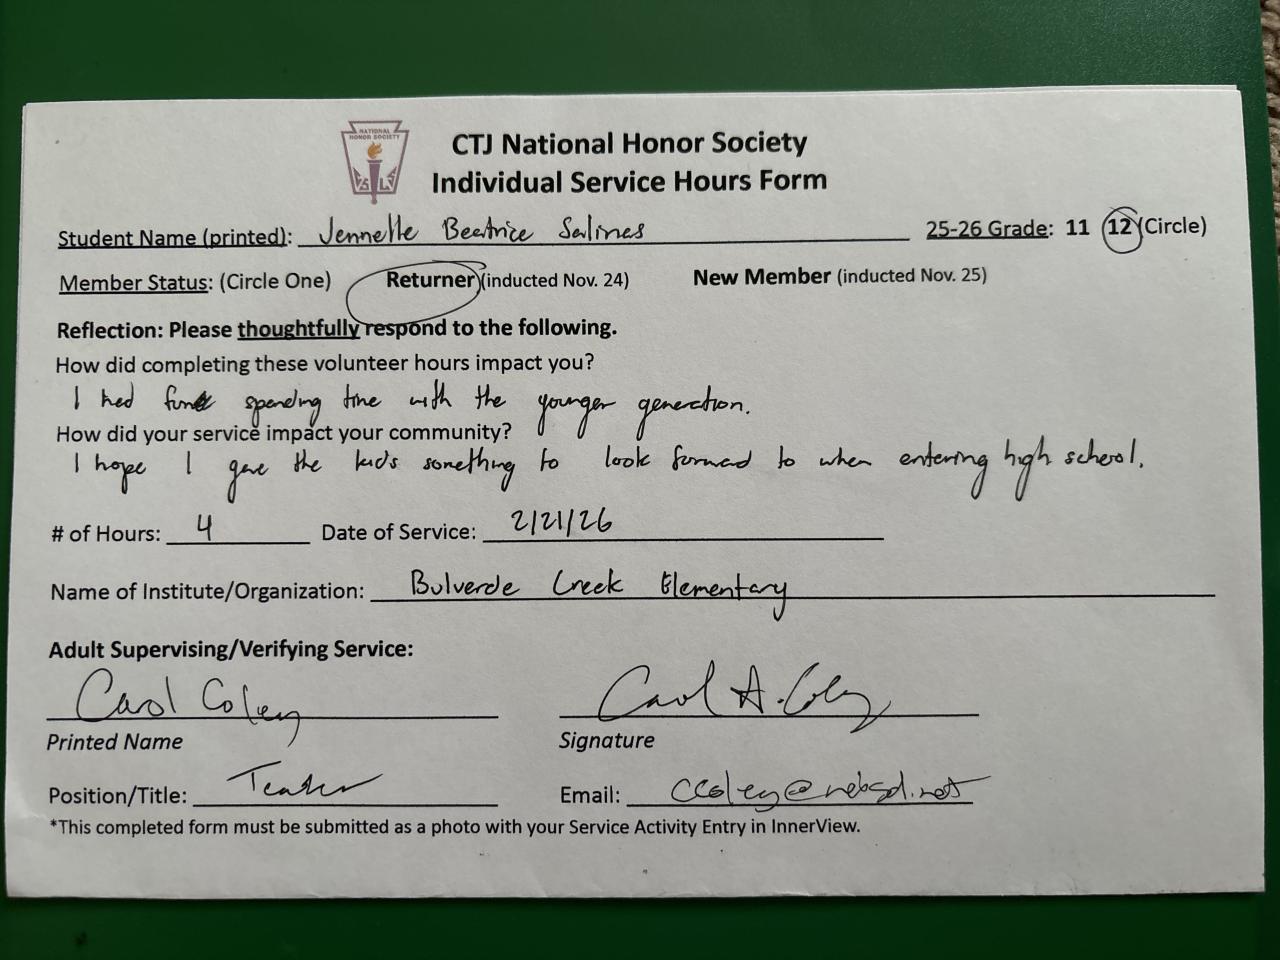 NATIONAL
HONOR SOCIETY
CTJ National Honor Society
Individual Service Hours Form
Student Name (printed): Jennelle Beatrice Salinas 25-26 Grade: 11 12 (Circle)
Member Status: (Circle One) Returner (inducted Nov. 24) New Member (inducted Nov. 25)
Reflection: Please thoughtfully respond to the following.
How did completing these volunteer hours impact you?
I had fun spending time with the younger generation.
How did your service impact your community?
I hope I gave the kids something to look forward to when entering high school.
# of Hours: 4 Date of Service: 2/21/26
Name of Institute/Organization: Bulverde Creek Elementary
Adult Supervising/Verifying Service:
Carol Coley Carol A. Coley
Printed Name Signature
Position/Title: Teacher Email: ccoley@neisd.net
*This completed form must be submitted as a photo with your Service Activity Entry in InnerView.